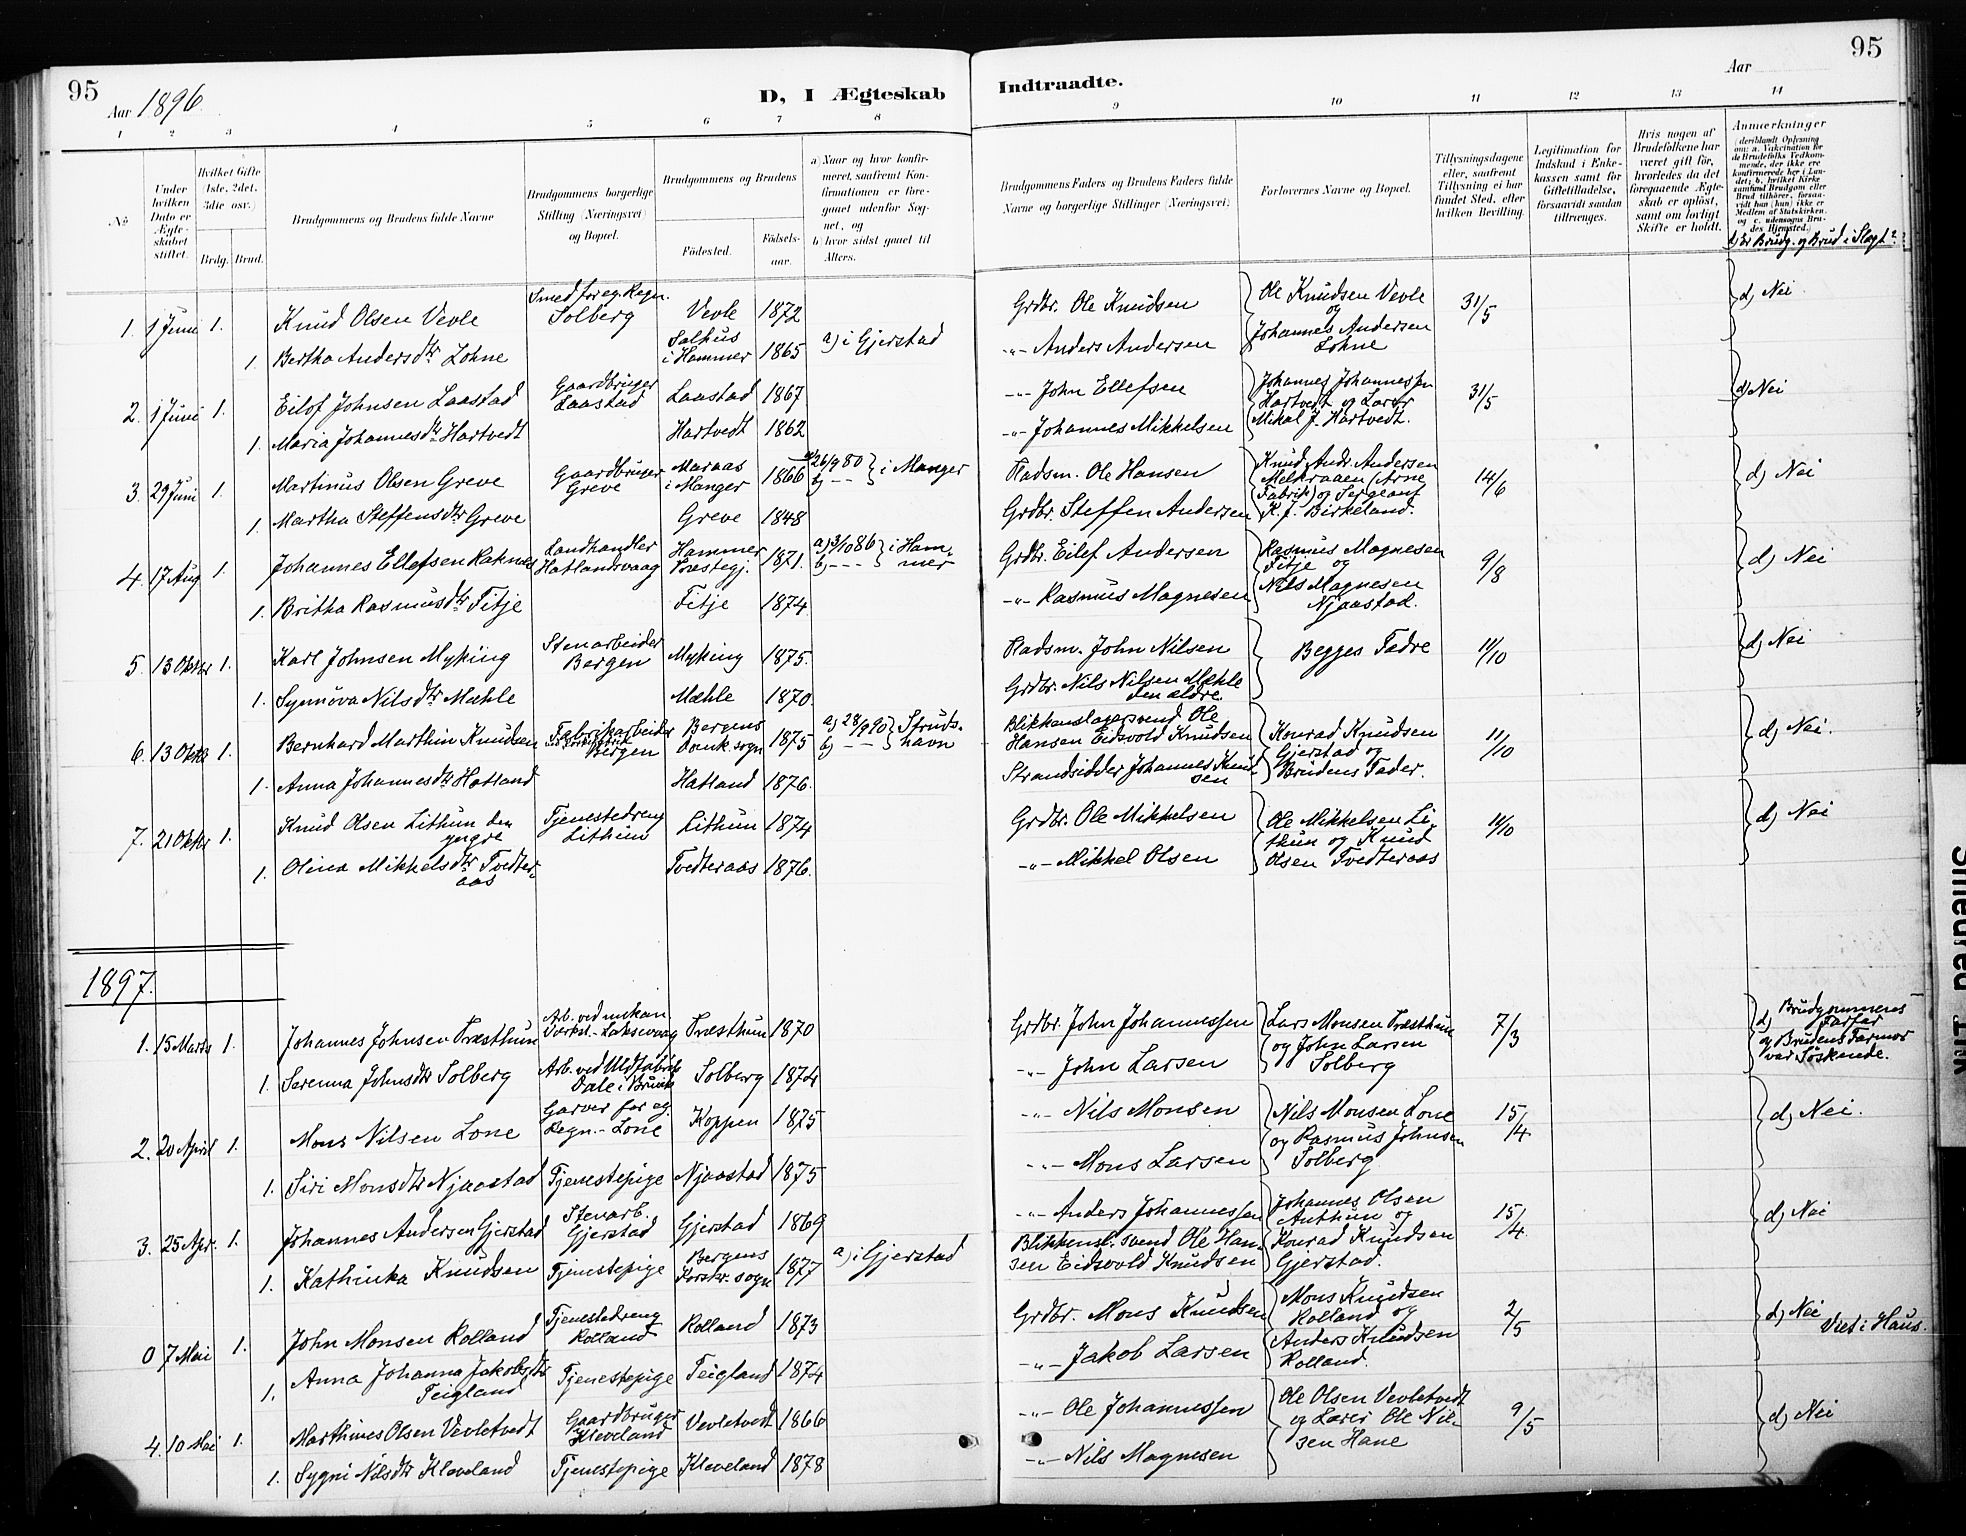 95
Aar 1896.
D, I Ægteskab Indtraadte.
Aar
95
1 2 3 4 5 6 7 8 9 10 11 12 13 14
No
Under hvilken Dato er Ægteskabet stiftet.
Hvilket Gifte (1ste, 2det, 3die osv.)
Brdg. Brud.
Brudgommens og Brudens fulde Navne
Brudgommens borgerlige Stilling (Næringsvei) og Bopæl.
Brudgommens og Brudens
Fødested. Fødselsaar.
a) Naar og hvor konfirmeret, saafremt Konfirmationen er foregaaet udenfor Sognet, og
b) hvor sidst gaaet til Alters.
Brudgommens Faders og Brudens Faders fulde Navne og borgerlige Stillinger (Næringsvei)
Forlovernes Navne og Bopæl.
Tillysningsdagene eller, saafremt Tillysning ei har fundet Sted, efter hvilken Bevilling.
Legitimation for Indskud i Enkekassen samt for Giftetilladelse, forsaavidt saadan tiltrænges.
Hvis nogen af Brudefolkene har været gift før, hvorledes da det foregaaende Ægteskab er opløst, samt om lovligt Skifte er holdt.
Anmærkninger
(deriblandt Oplysning om: a. Vakcination for de Brudefolks Vedkommende, der ikke ere konfirmerede her i Landet; b. hvilket Kirkesamfund Brudgom eller Brud tilhører, forsaavidt han (hun) ikke er Medlem af Statskirken, og c. udensogns Brudes Hjemsted.)
d, Er Brudg. og Brud i Slægt?
1. 1 Juni 1. Knud Olsen Vevle Smed for eg. Regn. Solberg Vevle 1872 Grdbr. Ole Knudsen Ole Knudsen Vevle og 31/5 d, Nei
1. Bertha Andersdtr Lohne Salhus i Hammer 1865 a) i Gjerstad -"- Anders Andersen Johannes Andersen Lohne
2. 1 Juni 1. Eilof Johnsen Laastad Gaardbruger Laastad Laastad 1867 -"- John Ellefsen Johannes Johannessen Hartvedt og Lærer 31/5 d, Nei
1. Maria Johannesdtr Hartvedt Hartvedt 1862 -"- Johannes Mikkelsen Mikal J. Hartvedt.
3. 29 Juni 1. Martinus Olsen Greve Gaardbruger Greve Maraas i Manger 1866 a) 26/9 80 b) - - i Manger Pladsm. Ole Hansen Knud Andr. Andersen Melkraaen (Arne 14/6 d) Nei
1. Martha Steffensdtr Greve Greve 1848 Grdbr. Steffen Andersen Fabrik) og Sergeant K. J. Birkeland.
4. 17 Aug 1. Johannes Ellefsen Raknes Landhandler Hatlandsvaag Hammer Præstegj. 1871. a) 3/10 86 b) - - - i Hammer Grdbr. Eilef Andersen Rasmus Magnesen Fitje og 9/8 d) Nei
1. Britha Rasmusdtr Fitje Fitje 1874. -"- Rasmus Magnesen Nils Magnesen Njaastad.
5. 13 Oktbr 1. Karl Johnsen Myking Stenarbeider Bergen Myking 1875. Pladsm. John Nilsen Begges Fædre 11/10 d, Nei
1. Synnøva Nilsdtr Mæhle Mæhle 1870. Grdbr. Nils Nilsen Mæhle den ældre.
6. 13 Oktbr 1. Bernhard Marthin Knudsen Fabrikarbeider Bergen Bergens Domk. sogn 1875 a) 28/9 90 b) - - Strudshavn Blikkenslagersvend Ole Hansen Eidsvold Knudsen Konrad Knudsen Gjerstad og 11/10 d, Nei.
1. Anna Johannesdtr Hatland Hatland 1876. Strandsidder Johannes Knudsen Brudens Fader.
7. 21 Oktbr 1. Knud Olsen Lithun den yngre Tjenestedreng Lithun Lithun 1874 Grdbr. Ole Mikkelsen Ole Mikkelsen Lithun og Knud 11/10 d, Nei
1. Olina Mikkelsdtr Tvedteraas Tvedteraas 1876. -"- Mikkel Olsen Olsen Tvedteraas
1897.
1. 15 Marts 1. Johannes Johnsen Træsthun Arb. ved mekan. Værkst. - Laksevaag Træsthun 1870 Grdbr. John Johannessen Lars Monsen Træsthun 7/3 d, Brudgommens Farfar
1. Serenna Johnsdtr Solberg Arb. ved Uldfabrik Dale i Bruvik Solberg 1874 -"- John Larsen og John Larsen Solberg og Brudens Farmor var Søskende.
2. 20 April 1. Mons Nilsen Lone Garver for eg. Regn. - Lone Koppen 1875 -"- Nils Monsen Nils Monsen Lone 15/4 d, Nei.
1. Siri Monsdtr Njaastad Tjenestepige Njaastad 1875 -"- Mons Larsen og Rasmus Johnsen Solberg
3. 25 Apr. 1. Johannes Andersen Gjerstad Stenarb. Gjerstad Gjerstad 1869 -"- Anders Johannessen Johannes Olsen Authun og 15/4 d, Nei
1. Kathinka Knudsen Tjenestepige Bergens Korskr. sogn 1877 a) i Gjerstad Blikkensl. svend Ole Hansen Eidsvold Knudsen Konrad Knudsen Gjerstad.
0 7 Mai 1. John Monsen Rolland Tjenestedreng Rolland Rolland 1873 Grdbr. Mons Knudsen Mons Knudsen Rolland og 2/5 d, Nei Viet i Haus.
1. Anna Johanna Jakobsdtr Teigland Tjenestepige Teigland 1874 -"- Jakob Larsen Anders Knudsen Rolland.
4. 10 Mai 1. Marthines Olsen Vevletvedt Gaardbruger Kleveland Vevletvedt 1866 -"- Ole Johannessen Ole Olsen Vevletvedt 9/5 d, Nei
1. Sygni Nilsdtr Kleveland Tjenestepige Kleveland 1878 -"- Nils Magnesen og Lærer Ole Nilsen Hane